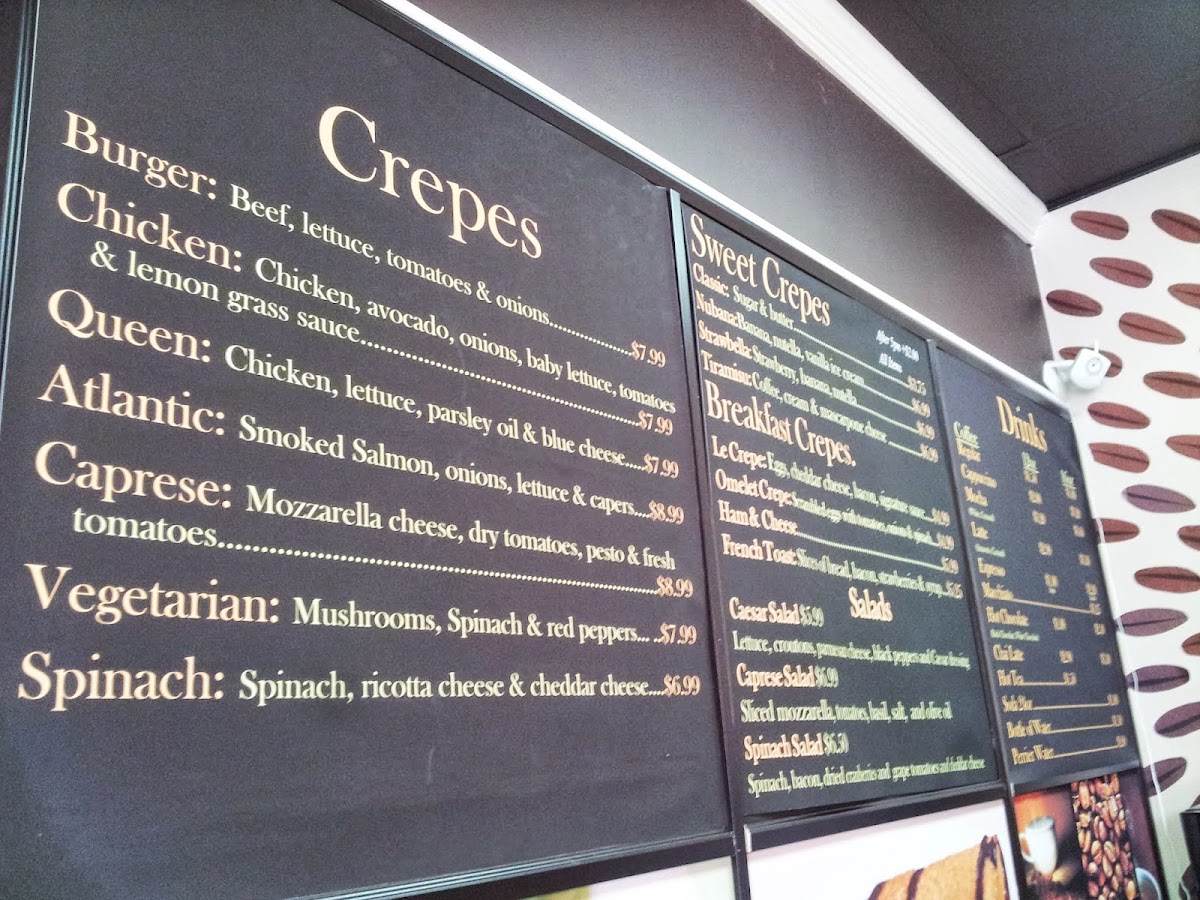 Crepes
Burger: Beef, lettuce, tomatoes & onions..................$7.99
Chicken: Chicken, avocado, onions, baby lettuce, tomatoes
& lemon grass sauce............................................................$7.99
Queen: Chicken, lettuce, parsley oil & blue cheese.....$7.99
Atlantic: Smoked Salmon, onions, lettuce & capers....$8.99
Caprese: Mozzarella cheese, dry tomatoes, pesto & fresh
tomatoes..............................................................................$8.99
Vegetarian: Mushrooms, Spinach & red peppers... ..$7.99
Spinach: Spinach, ricotta cheese & cheddar cheese....$6.99
Sweet Crepes
After 5pm +$2.00
All Items
Classic: Sugar & butter..............................
Nubana:Banana, nutella, vanilla ice cream.............$6.99
Strawbella: Strawberry, banana, nutella................$6.99
Tiramisu: Coffee, cream & mascarpone cheese ..........$6.99
Breakfast Crepes.
Le Crepe: Eggs, cheddar cheese, bacon, signature sauce....$4.99
Omelet Crepe: Scrambled eggs with tomatoes, onions & spinach....$4.99
Ham & Cheese..................................................$5.99
French Toast: Slices of bread, bacon, strawberries & syrup....$5.25
Salads
Caesar Salad $5.99
Lettuce, croutons, parmesan cheese, black peppers and Caesar dressing
Caprese Salad $6.99
Sliced mozzarella, tomatoes, basil, salt, and olive oil
Spinach Salad $6.50
Spinach, bacon, dried cranberries and grape tomatoes and cheddar cheese
Drinks
Coffee
Regular
Cappuccino
Mocha
Latte
Espresso
Macchiato
Hot Chocolate
Chai Latte
Hot Tea
Soda
Bottle of Water
Perrier Water